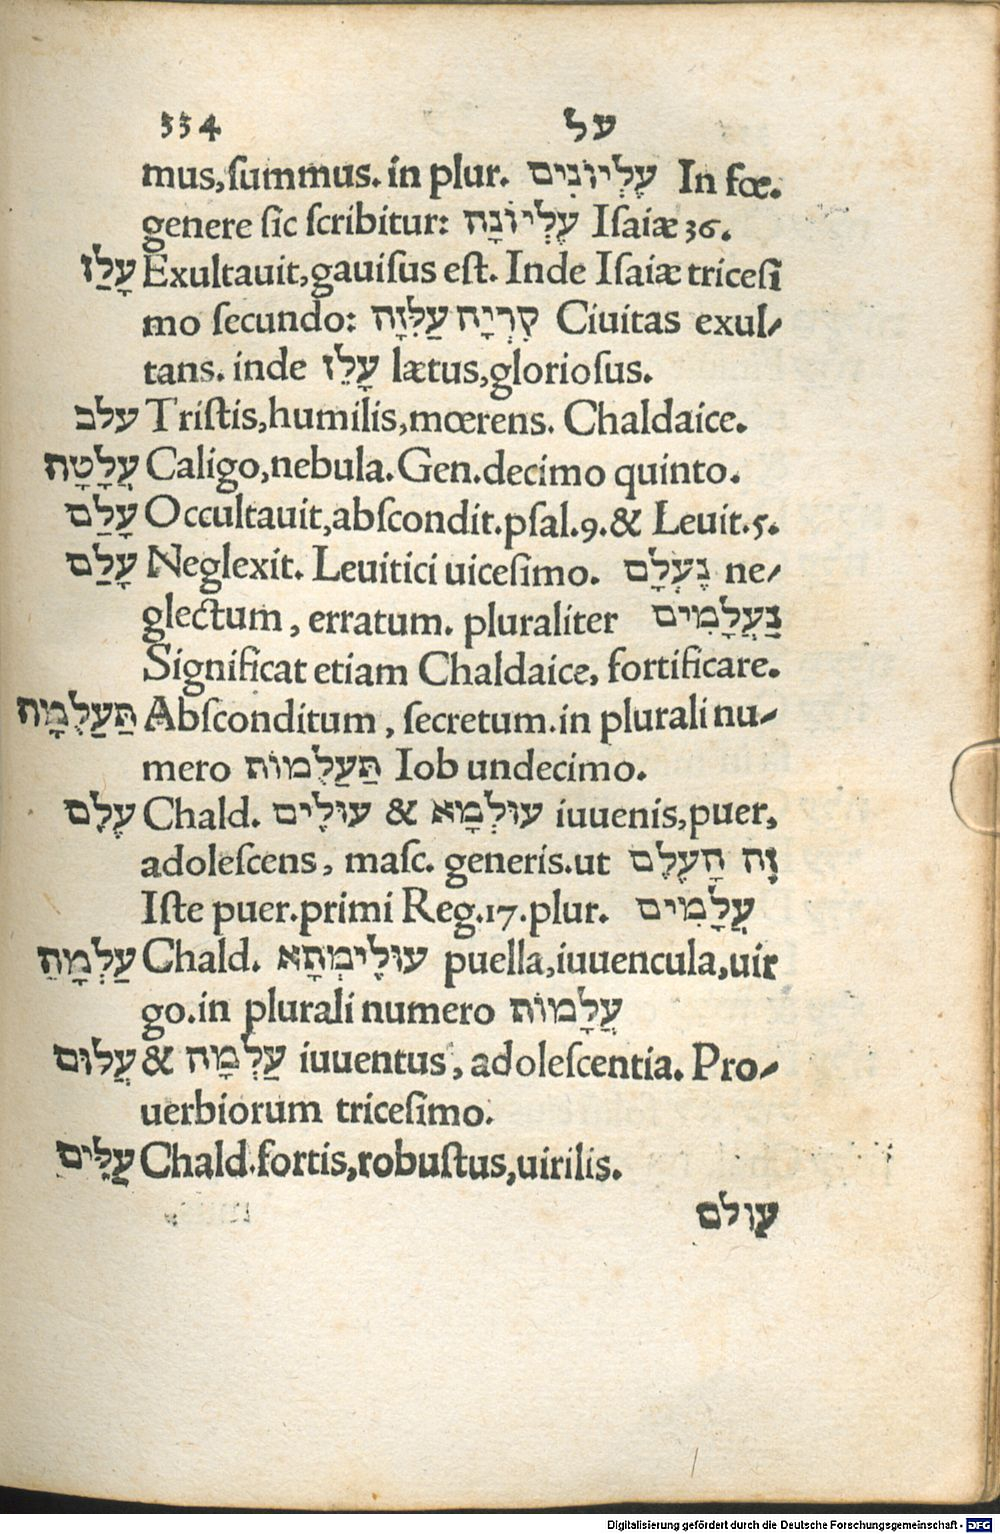 334 על
mus, summus. in plur. עֶלְיוֹנִים In fœ.
genere sic scribitur: עֶלְיוֹנָה Isaiæ 36.
עָלַז Exultauit, gauisus est. Inde Isaiæ tricesi
mo secundo: קִרְיָה עַלִּזָה Ciuitas exul-
tans. inde עָלֵז lætus, gloriosus.
עלב Tristis, humilis, mœrens. Chaldaice.
עֲלָטָה Caligo, nebula. Gen. decimo quinto.
עָלַם Occultauit, abscondit. psal. 9. & Leuit. 5.
עָלַם Neglexit. Leuitici uicesimo. נֶעְלָם ne-
glectum, erratum. pluraliter נַעֲלָמִים
Significat etiam Chaldaice, fortificare.
תַּעֲלֻמָה Absconditum, secretum. in plurali nu-
mero תַּעֲלֻמוֹת Iob undecimo.
עֶלֶם Chald. עוּלִים & עוּלְמָא iuuenis, puer,
adolescens, masc. generis. ut זֶה הָעֶלֶם
Iste puer. primi Reg. 17. plur. עֲלָמִים
עַלְמָה Chald. עוּלֵימְתָא puella, iuuencula, uir
go. in plurali numero עֲלָמוֹת
עֲלוּם & עַלְמָה iuuentus, adolescentia. Pro-
uerbiorum tricesimo.
עַלִּים Chald. fortis, robustus, uirilis.
עולם
Digitalisierung gefördert durch die Deutsche Forschungsgemeinschaft - DFG